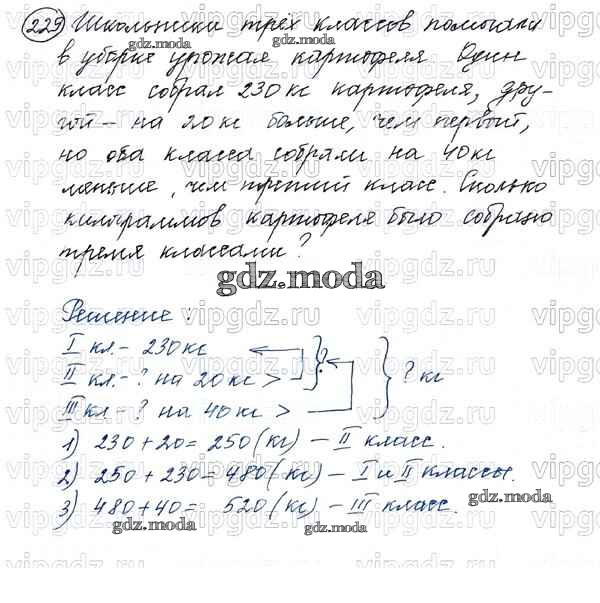 229 Школьники трех классов помогали
в уборке урожая картофеля Один
класс собрал 230 кг картофеля, дру-
гой – на 20 кг больше, чем первый,
но оба класса собрали на 40 кг
меньше, чем третий класс. Сколько
килограммов картофеля было собрано
тремя классами?
gdz.moda
Решение:
I кл. - 230 кг
II кл - ? на 20 кг > ? ? кг
III кл - ? на 40 кг >
1) 230 + 20 = 250 (кг) – II класс.
2) 250 + 230 = 480 (кг) – I и II классы.
3) 480 + 40 = 520 (кг) – III класс.
gdz.moda
vipgdz.ru